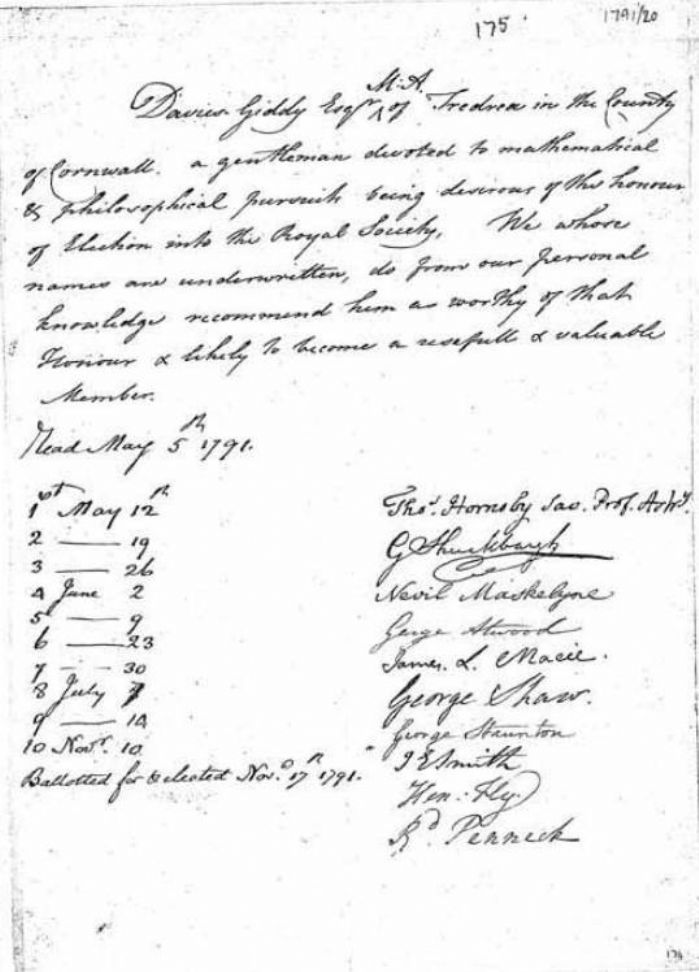 175
1791/20
Davies Giddy Esqr M:A. of Tredrea in the County
of Cornwall. a gentleman devoted to mathematical
& philosophical pursuits being desirous of the honour
of Election into the Royal Society, We whose
names are underwritten, do from our personal
knowledge recommend him as worthy of that
Honour & likely to become a usefull & valuable
Member.
Read May 5th 1791.
1st May 12th
2 — 19
3 — 26
4 June 2
5 — 9
6 — 23
7 — 30
8 July 7
9 — 14
10 Novr. 10
Ballotted for & elected Nov. 17th 1791.
Thos. Hornsby Sav. Prof. Astr.
G Shuckburgh
Nevil Maskelyne
George Atwood
James. L. Macie.
George Shaw.
George Staunton
J E Smith
Hen: Fly
Rd Penneck